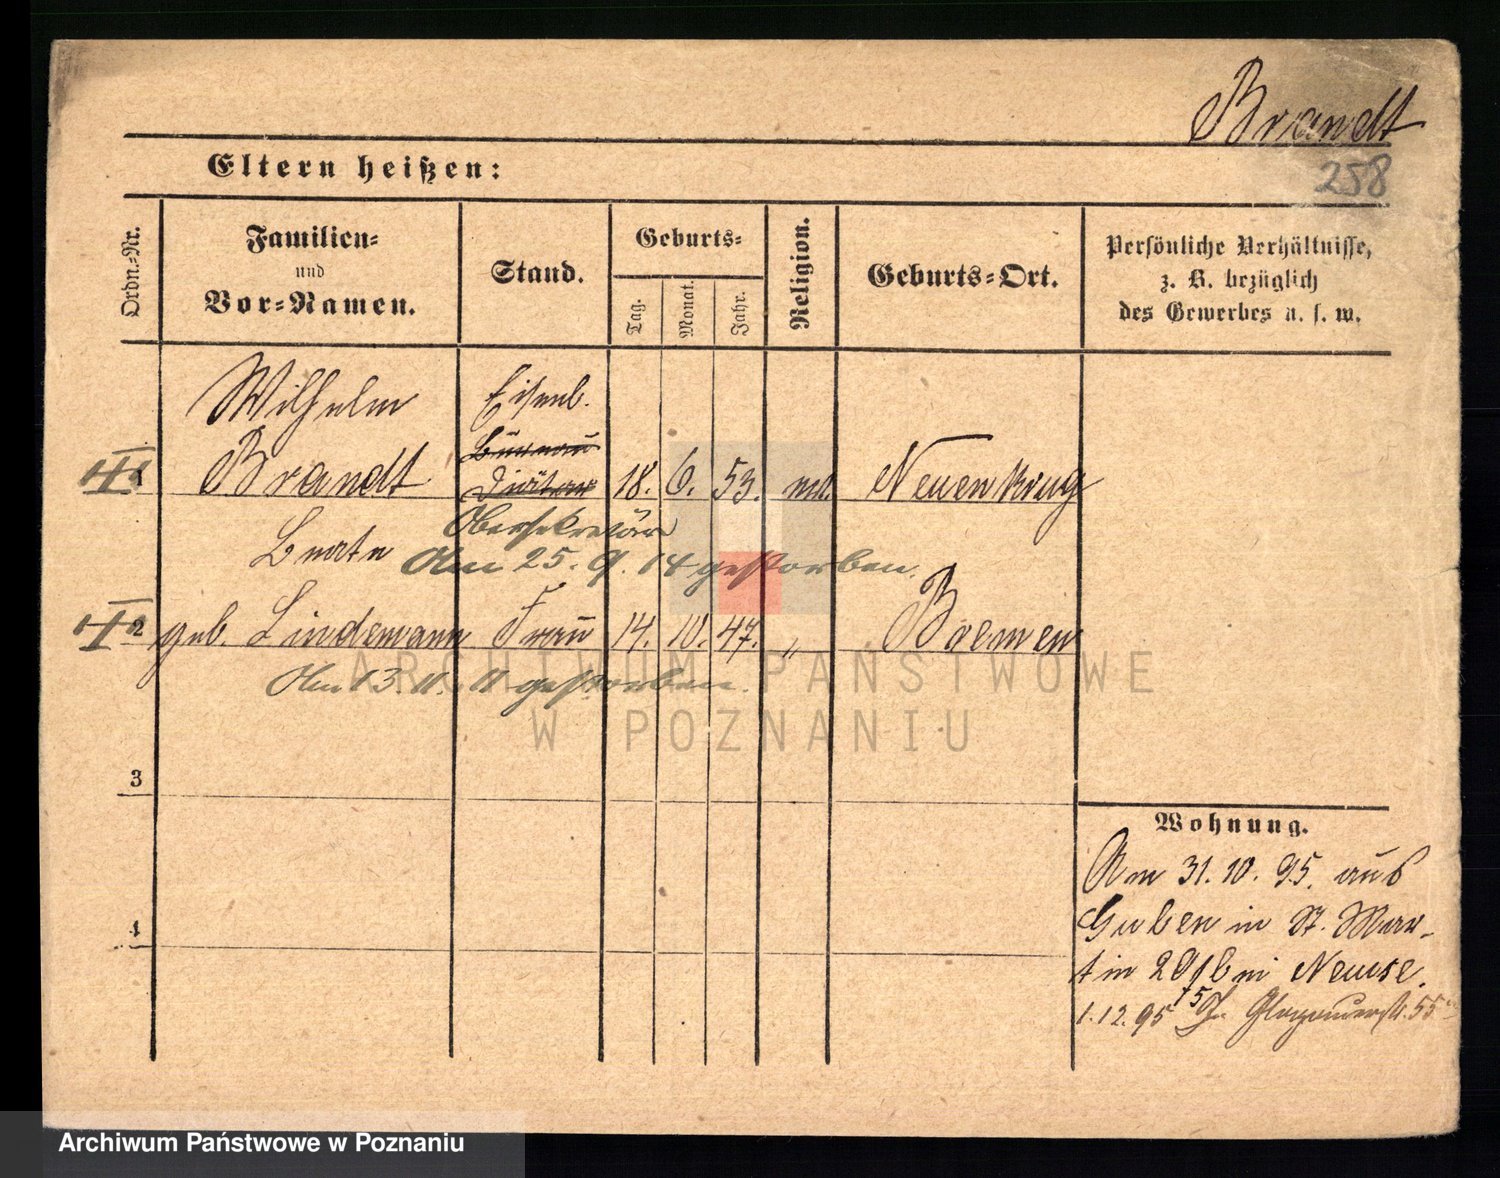 Brandt
258
Eltern heißen:
Ordn.-Nr.
Familien-
und
Vor-Namen.
Stand.
Geburts-
Tag.
Monat.
Jahr.
Religion.
Geburts-Ort.
Persönliche Verhältnisse,
z. B. bezüglich
des Gewerbes u. s. w.
Wilhelm Eisenb.
Büreau
1 Brandt Diätar 18. 6. 53. Neuenkrug
Obersekretär
Beate Am 25. 9. 14 gestorben.
2 geb. Lindemann Frau 14. 10. 47. " Bremen
Am 13. 11. 11 gestorben.
3
4
Wohnung.
Am 31. 10. 95. aus
Guben in St. Mar-
tin 29 bei
1.12.95 Glogauerstr. 55
ARCHIWUM PAŃSTWOWE
W POZNANIU
Archiwum Państwowe w Poznaniu